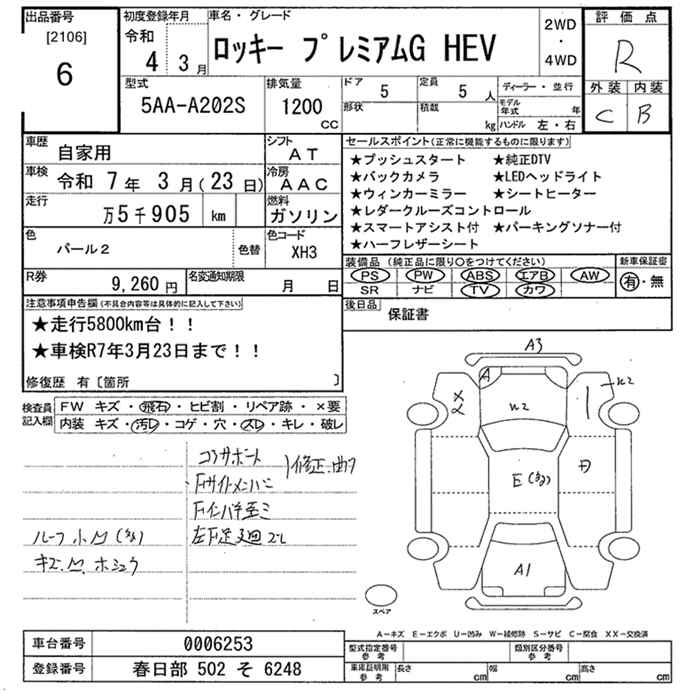 出品番号
[2106]
6
初度登録年月
令和
4 3月
車名・グレード
ロッキー プレミアムG HEV
2WD
・
4WD
評価点
R
外装 内装
C B
型式
5AA-A202S
排気量
1200
cc
ドア 5
形状
定員 5 人
積載 kg
ディーラー・並行
モデル年式 年
ハンドル 左・右
車歴
自家用
シフト
AT
車検
令和 7年 3月(23日)
冷房
AAC
走行
万5千905 km
燃料
ガソリン
色
パール2
色替
色コード
XH3
R券
9,260円
名変通知期限
月 日
セールスポイント(正常に機能するものに限ります)
★プッシュスタート ★純正DTV
★バックカメラ ★LEDヘッドライト
★ウィンカーミラー ★シートヒーター
★レダークルーズコントロール
★スマートアシスト付 ★パーキングソナー付
★ハーフレザーシート
装備品(純正品に限り○をつけてください)
PS PW ABS エアB AW
SR ナビ TV カワ
新車保証書
有・無
後日品
保証書
注意事項申告欄(不具合内容等は具体的に記入して下さい)
★走行5800km台!!
★車検R7年3月23日まで!!
修復歴 有〔箇所 〕
検査員記入欄
FW キズ・飛石・ヒビ割・リペア跡・×要
内装 キズ・汚レ・コゲ・穴・スレ・キレ・破レ
コアサポート
Fサイドメンバー
修正・曲り
Fインパネ歪ミ
左F足廻ズレ
ルーフ小凹
キズ凹ホシュウ
A3
A
XX
W2
W2
E
A1
スペア
A−キズ E−エクボ U−凹み W−補修跡 S−サビ C−腐食 XX−交換済
車台番号
0006253
登録番号
春日部 502 そ 6248
型式指定番号
参考
類別区分番号
参考
車庫証明用
参考
長さ cm
幅 cm
高さ cm